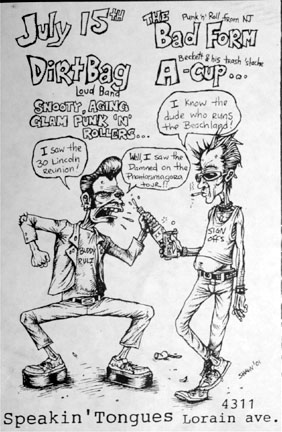 July 15TH
DiRtBag
Loud Band
SNOOTY, AGING
GLAM PUNK 'N'
ROLLERS...
THE Punk 'n' Roll from NJ
Bad FoRM
Beckett & his trash
A-Cup...
I KNOW the
dude who runs
the Beachland!
I SAW the
30 Lincoln
Reunion!
Well, I saw the
Damned on the
Phantasmagoria
tour!!
BUDDY
RULZ
SIGN
OFFS
4311
Speakin'Tongues Lorain ave.